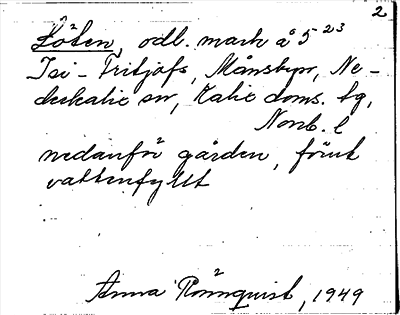 2
Löten, odl. mark å 5 23
Isi-Fritjofs, Månsbyn, Ne-
derkalix sn, Kalix doms. tg,
Norrb. l
nedanför gården, förut
vattenfyllt
Anna Rönnquist, 1949